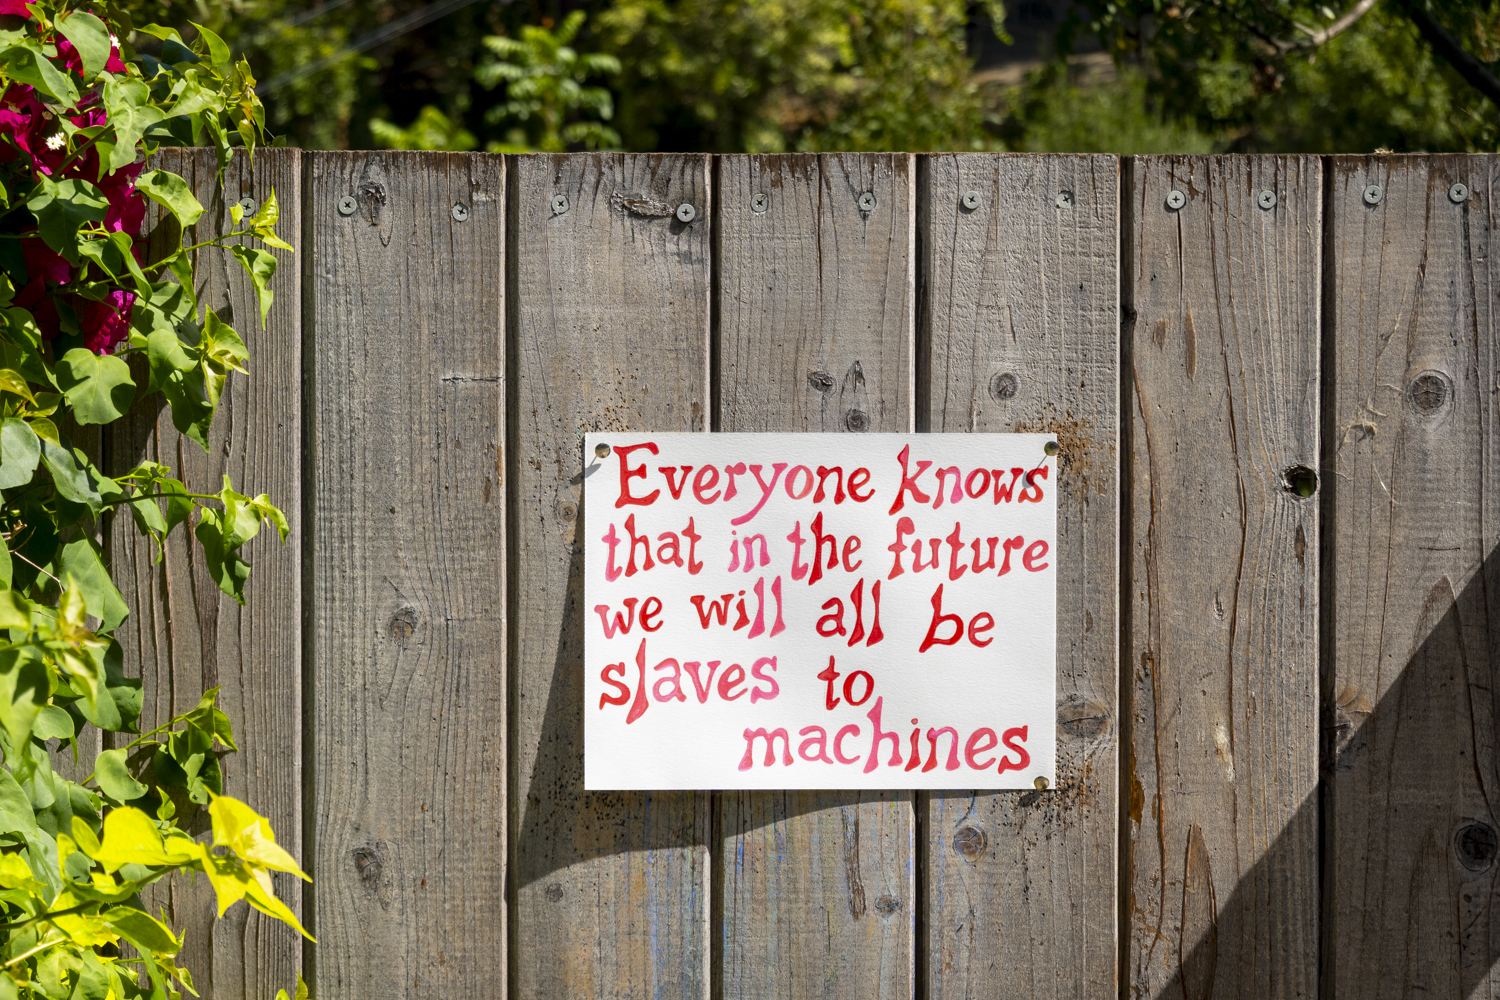 Everyone knows
that in the future
we will all be
slaves to
machines